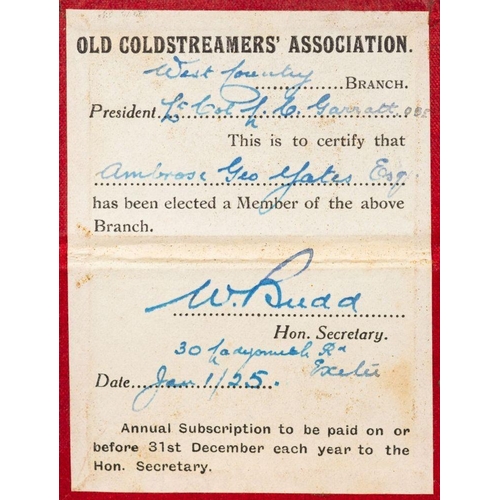 OLD COLDSTREAMERS' ASSOCIATION.
West Country BRANCH.
President Lt Col Garratt OBE
This is to certify that
Ambrose Geo Yates Esq.
has been elected a Member of the above
Branch.
W. Budd
Hon. Secretary.
30 Rd
Exeter
Date Jan 1/25.
Annual Subscription to be paid on or
before 31st December each year to the
Hon. Secretary.